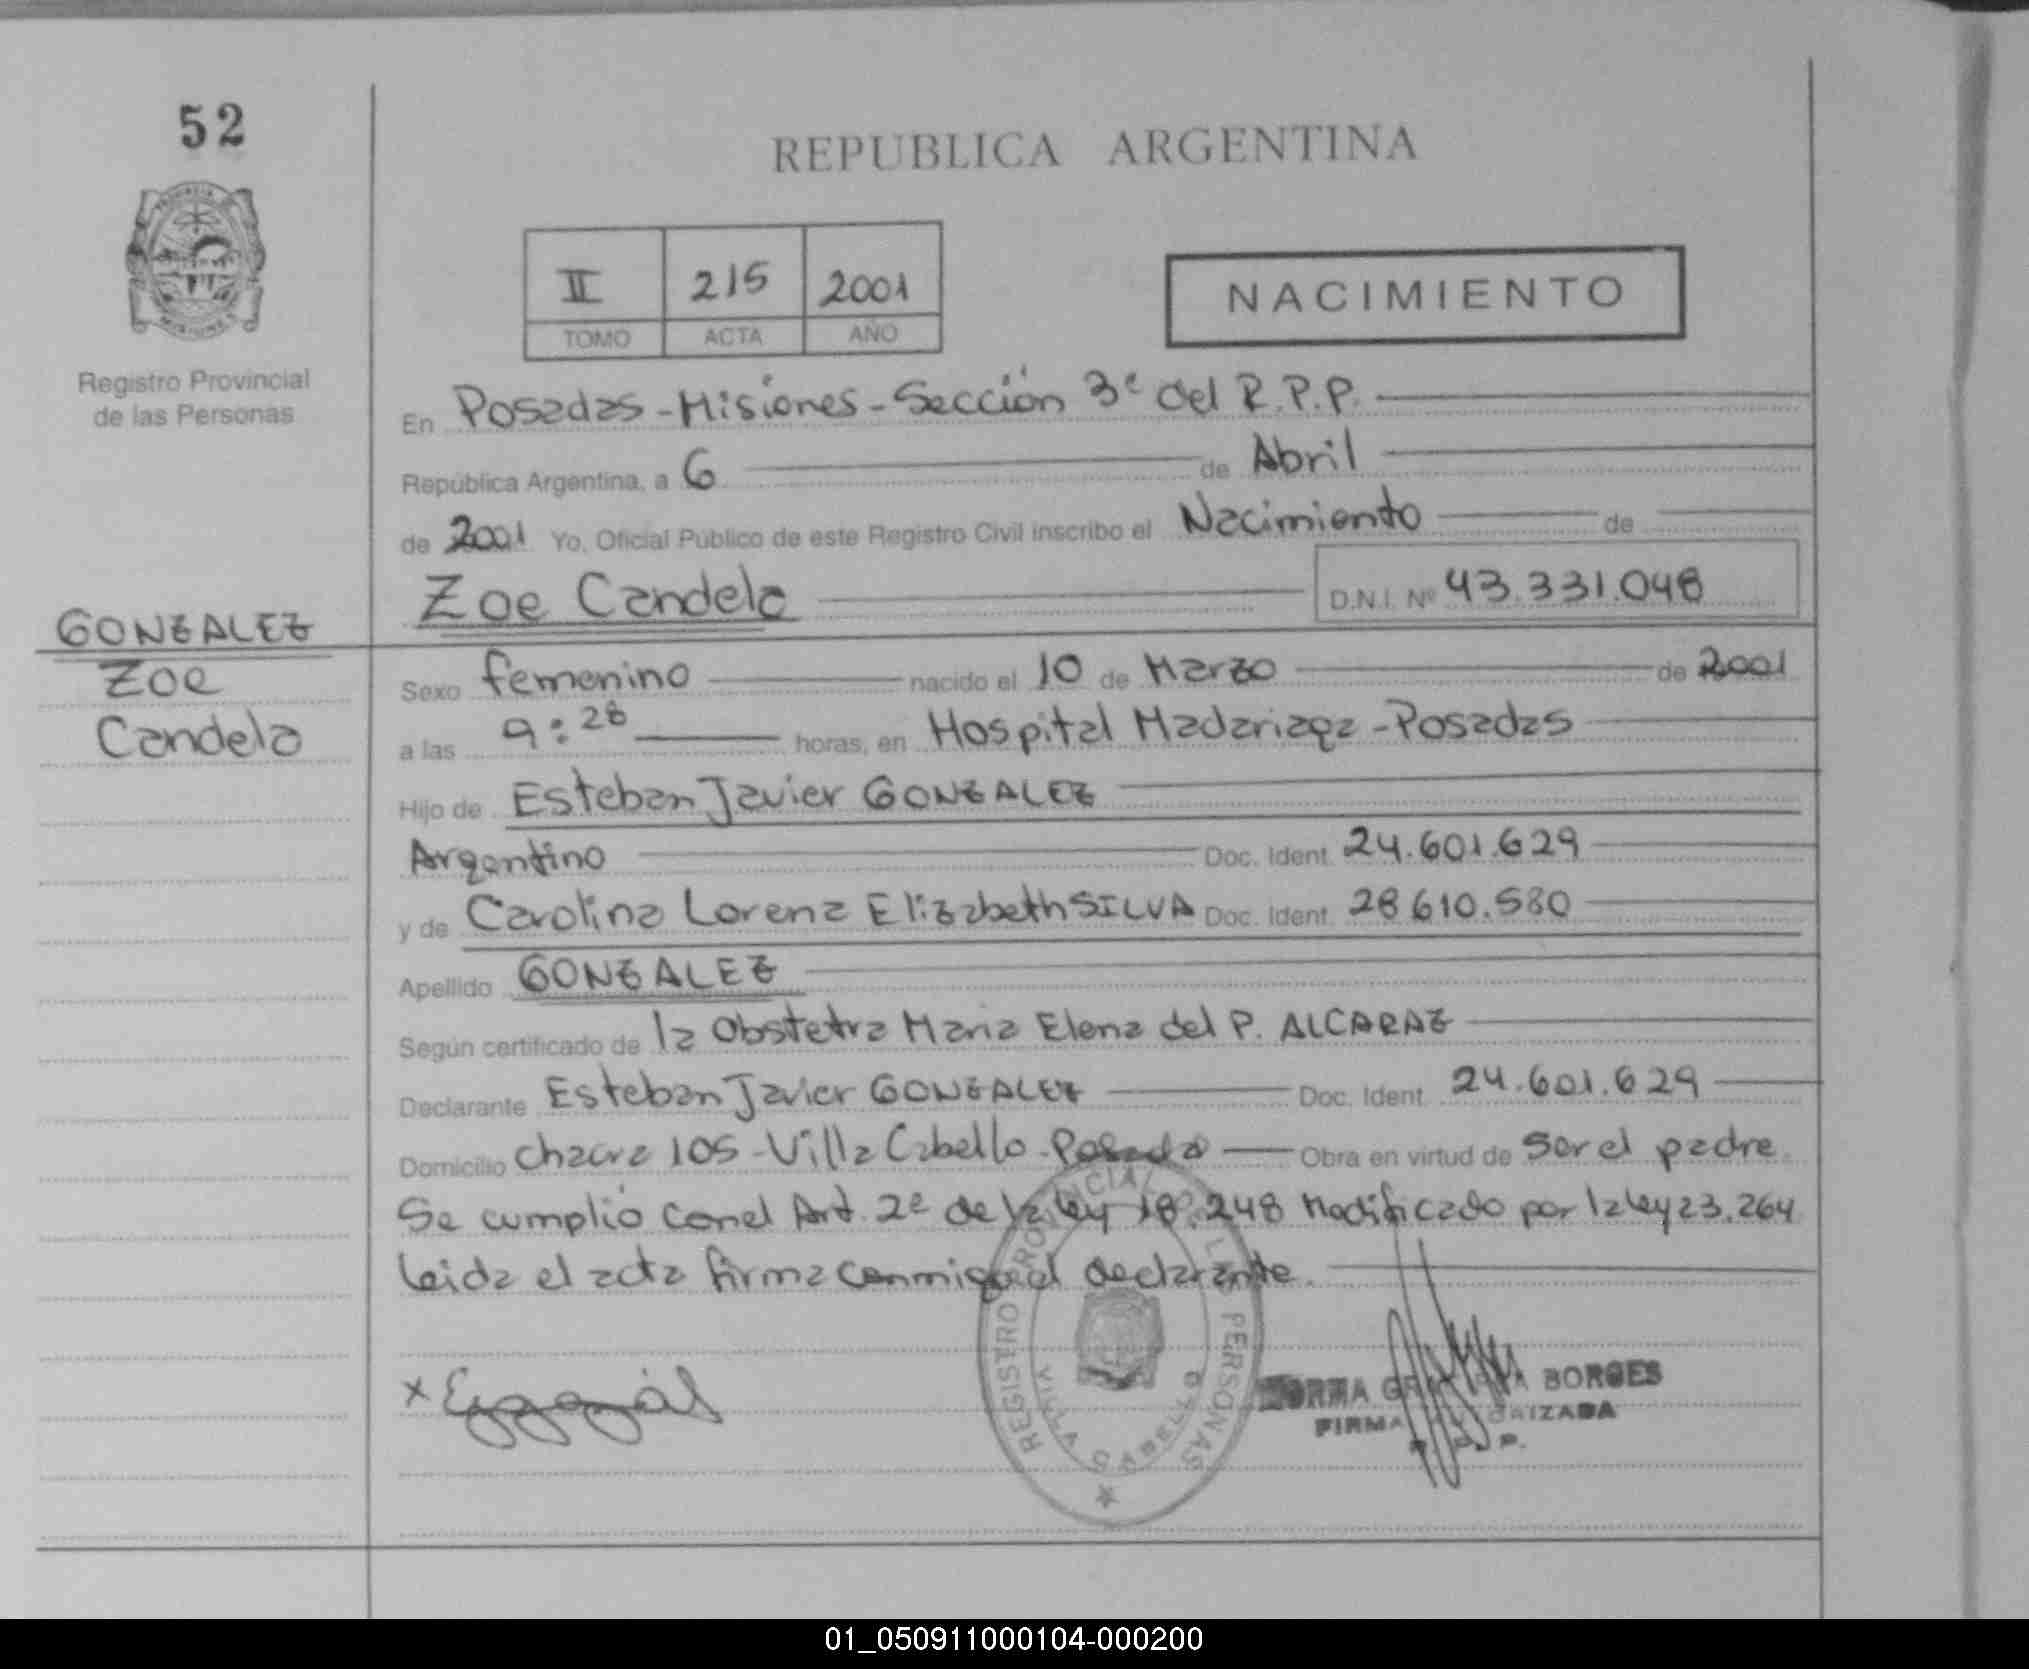 52
REPUBLICA ARGENTINA
II 215 2001
TOMO ACTA AÑO
NACIMIENTO
Registro Provincial
de las Personas
En Posadas - Misiones - Sección 3ª del R.P.P.
República Argentina, a 6 de Abril
de 2001 Yo, Oficial Público de este Registro Civil inscribo el Nacimiento de
Zoe Candela D.N.I. Nº 43.331.048
GONZALEZ
Zoe
Candela
Sexo femenino nacido el 10 de Marzo de 2001
a las 9:28 horas, en Hospital Madariaga - Posadas
Hijo de Esteban Javier GONZALEZ
Argentino Doc. Ident. 24.601.629
y de Carolina Lorena Elizabeth SILVA Doc. Ident. 28610.580
Apellido GONZALEZ
Según certificado de la Obstetra Maria Elena del P. ALCARAZ
Declarante Esteban Javier GONZALEZ Doc. Ident. 24.601.629
Domicilio Chacra 105 - Villa Cabello - Posadas Obra en virtud de ser el padre
Se cumplió con el Art. 2º de la ley 18.248 Modificado por la ley 23.264
Leida el acta firma conmigo el declarante.
REGISTRO PROVINCIAL DE LAS PERSONAS
VILLA CABELLO
BORGES
FIRMA
01_050911000104-000200